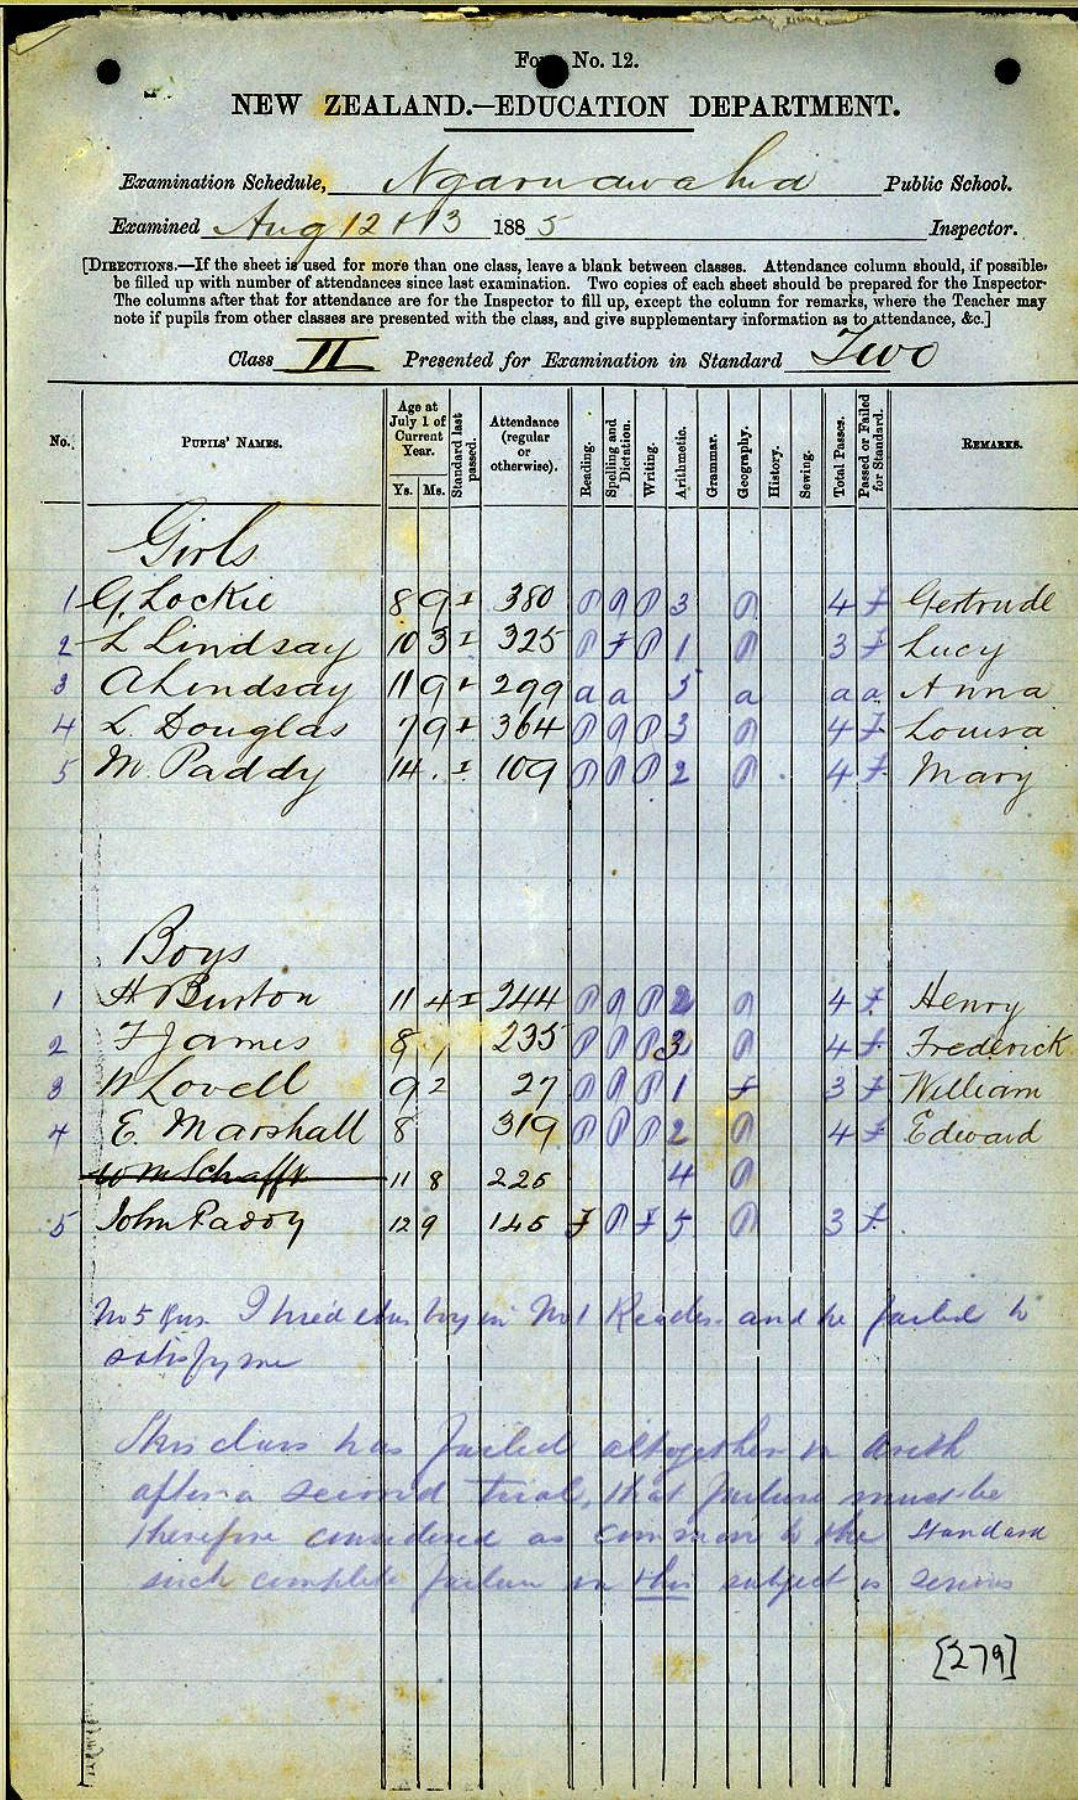 Form No. 12.
NEW ZEALAND.—EDUCATION DEPARTMENT.
Examination Schedule, Ngaruawahia Public School.
Examined Aug 12 + 13 1885 Inspector.
[DIRECTIONS.—If the sheet is used for more than one class, leave a blank between classes. Attendance column should, if possible,
be filled up with number of attendances since last examination. Two copies of each sheet should be prepared for the Inspector.
The columns after that for attendance are for the Inspector to fill up, except the column for remarks, where the Teacher may
note if pupils from other classes are presented with the class, and give supplementary information as to attendance, &c.]
Class II Presented for Examination in Standard Two
No. PUPILS' NAMES. Age at July 1 of Current Year. Ys. Ms. Standard last passed. Attendance (regular or otherwise). Reading. Spelling and Dictation. Writing. Arithmetic. Grammar. Geography. History. Sewing. Total Passes. Passed or Failed for Standard. REMARKS.
Girls
1 G. Lockie 8 9 I 380 P P P 3 P 4 F Gertrude
2 L Lindsay 10 3 I 325 P F P 1 P 3 F Lucy
3 A Lindsay 11 9 I 299 a a 5 a a a Anna
4 L. Douglas 7 9 I 364 P P P 3 P 4 F Louisa
5 M. Paddy 14 . I 109 P P P 2 P 4 F Mary
Boys
1 H Burton 11 4 I 244 P P P 2 P 4 F Henry
2 F James 8 1 235 P P P 3 P 4 F Frederick
3 W Lovell 9 2 27 P P P 1 F 3 F William
4 E. Marshall 8 319 P P P 2 P 4 F Edward
Wm Schafft 11 8 225 4 P
5 John Paddy 12 9 145 F P F 5 P 3 F
No 5 I tried this boy in No 1 Reader and he failed to
satisfy me
This class has failed altogether in Arith
after a second trial, that failure must be
therefore considered as common to the Standard
such complete failure in this subject is serious
[279]